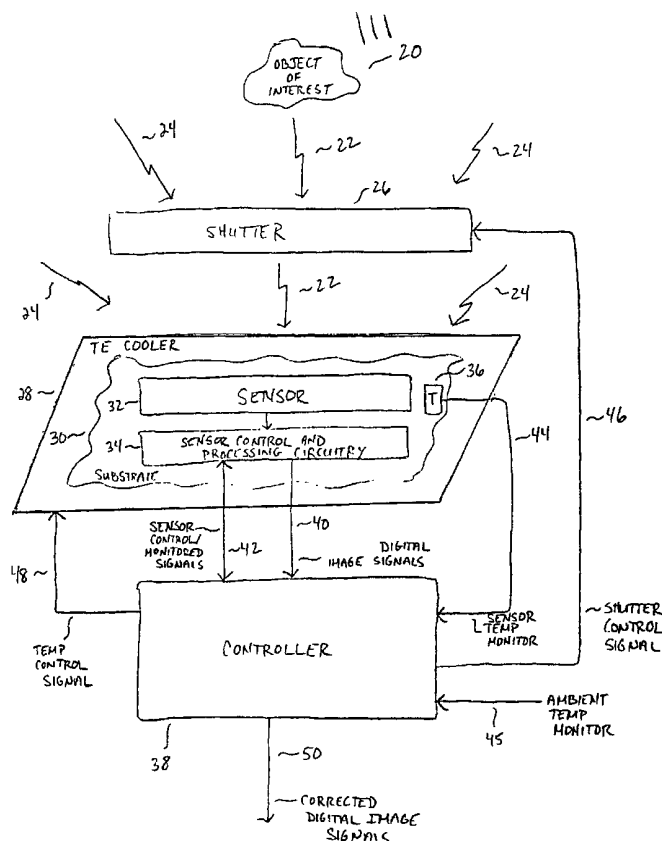 OBJECT
OF
INTEREST
20
24
22
24
26
SHUTTER
22
24
24
TE COOLER
28
36
32
SENSOR
T
30
34
SENSOR CONTROL AND
PROCESSING CIRCUITRY
SUBSTRATE
44
46
SENSOR
CONTROL/
MONITORED
SIGNALS
42
40
DIGITAL
IMAGE SIGNALS
48
TEMP
CONTROL
SIGNAL
CONTROLLER
SENSOR
TEMP
MONITOR
SHUTTER
CONTROL
SIGNAL
AMBIENT
TEMP
MONITOR
45
38
50
CORRECTED
DIGITAL IMAGE
SIGNALS